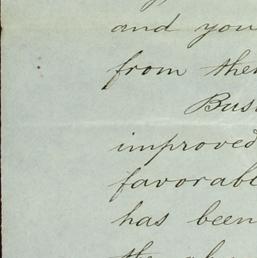 and you
from the
Bus
improved
favorabl
has been
the